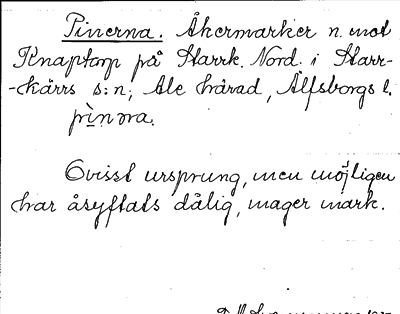 Pinerna. Åkermarker n. mot
Knaptorp på Starrk. Nord. i Starr-
-kärrs s:n; Ale härad, Älfsborgs l.
pìnɷra.
Ovisst ursprung, men möjligen
har åsyftats dålig, mager mark.